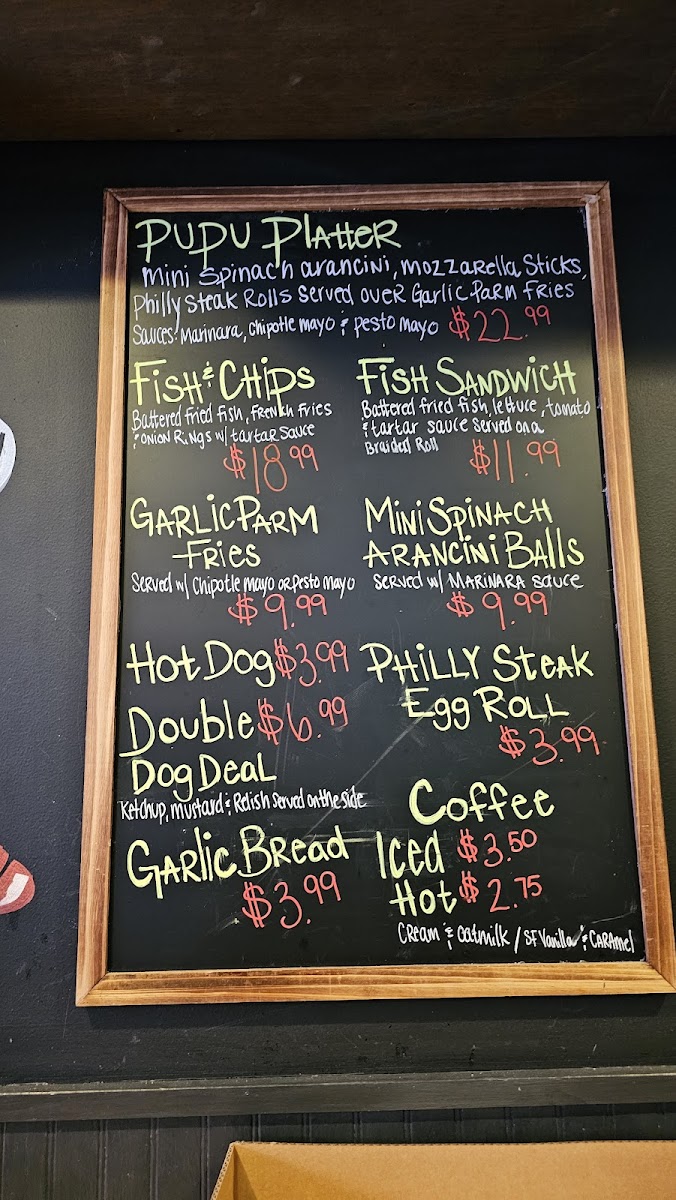 Pupu Platter
Mini Spinach arancini, mozzarella Sticks,
Philly Steak Rolls served over Garlic Parm Fries
Sauces: Marinara, chipotle mayo & pesto mayo $22.99
Fish & Chips
Battered fried fish, French fries
& onion rings w/ tartar sauce
$18.99
Fish Sandwich
Battered fried fish, lettuce, tomato
& tartar sauce served on a
Braided Roll
$11.99
Garlic Parm
Fries
Served w/ Chipotle mayo or Pesto mayo
$9.99
Mini Spinach
Arancini Balls
Served w/ Marinara sauce
$9.99
Hot Dog $3.99
Double $6.99
Dog Deal
Ketchup, mustard & Relish served on the side
Philly Steak
Egg Roll
$3.99
Garlic Bread
$3.99
Coffee
Iced $3.50
Hot $2.75
Cream & oatmilk / SF Vanilla & Caramel